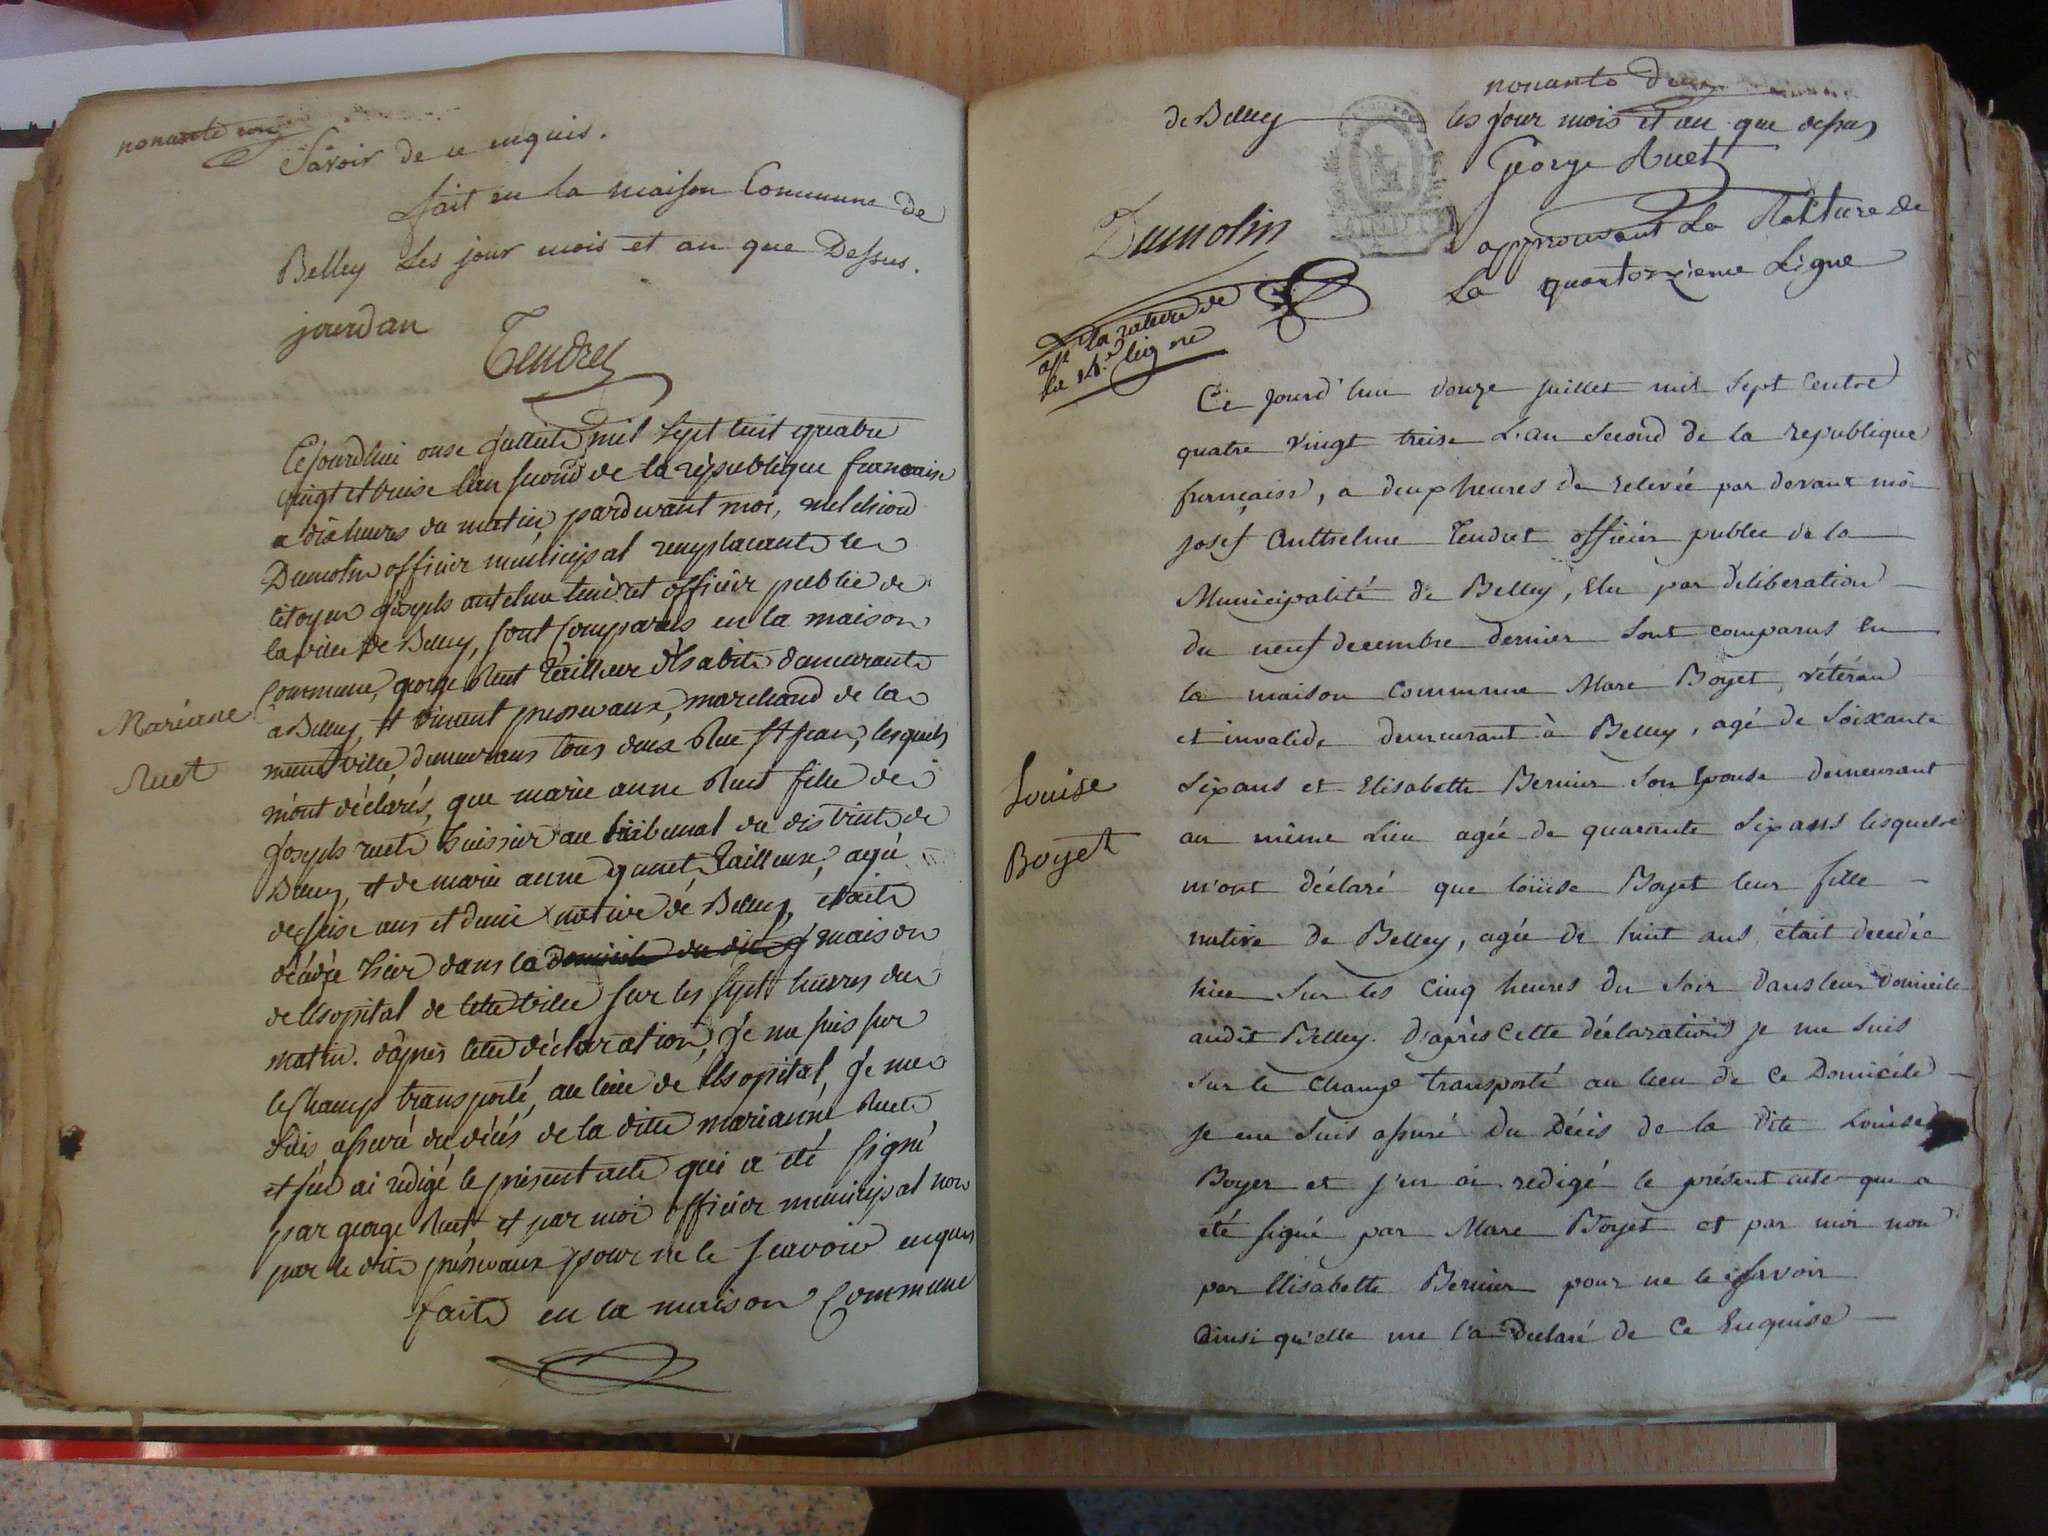 nonante un
Savoir de ce enquis.
fait en la maison Commune de
Belley Les jour mois et an que Dessus.
jourdan
Tendret
Cejourdhui onse juillet mil sept cent quatre
vingt et treise l'an second de la république francaise
a dix heures du matin, pardevant moi, melchiord
Dumolin officier municipal remplacant le
citoyen joseph antelme tendret officier public de
la ville de Belley, sont comparus en la maison
Commune, george Ruet tailleur d'habits demeurant
a Belley, et vincent marchand de la
meme ville demeurans tous deux Rue st jean, lesquels
m'ont déclarés, que marie anne Ruet fille de
joseph ruet huissier au tribunal du district de
Belley, et de marie anne tailleuse, agée
de seise ans et demi native de Belley, etoit
décédée hier dans la domicile du dit maison
de lhopital de cette ville sur les sept heures du
matin. d'après cette déclaration, je me suis sur
le champ transporté, au lieu de lhopital, je me
suis assuré du décés de la ditte marianne Ruet
et j'en ai redigé le présent acte qui a été signé
par george Ruet, et par moi officier municipal non
par le dit pour ne le scavoir enquis
fait en la maison Commune
Mariane
Ruet
nonante deux
de Belley les jour mois et an que dessus
George Ruet
Dumolin
approuvant La Rature de
La quatorzieme Ligne
app la rature de
la 14e ligne
Ce jourd'hui douze juillet mil sept Cent
quatre vingt treise L'an second de la republique
française, a deux heures de relevée par devant moi
josef Anthelme Tendret officier public de la
Municipalité de Belley, Elu par deliberation
du neuf decembre dernier sont comparus En
la maison Commune Marc Boyet, vétéran
et invalide demeurant à Belley, agé de soixante
six ans et Elisabette Bernier son Epouse demeurant
au même Lieu agée de quarante six ans lesquels
m'ont déclaré que louise Boyet leur fille
native de Belley, agée de huit ans, était decedée
hier sur les cinq heures du soir dans leur domicile
audit Belley. D'après Cette déclaration je me suis
sur le Champ transporté au lieu de Ce Domicile
je me suis assuré du Décés de la dite Louise
Boyet et j'en ai redigé le présent acte qui a
été signé par Marc Boyet et par moi non
par Elisabette Bernier pour ne le savoir
ainsi qu'elle me l'a Declaré de Ce Enquise
Louise
Boyet